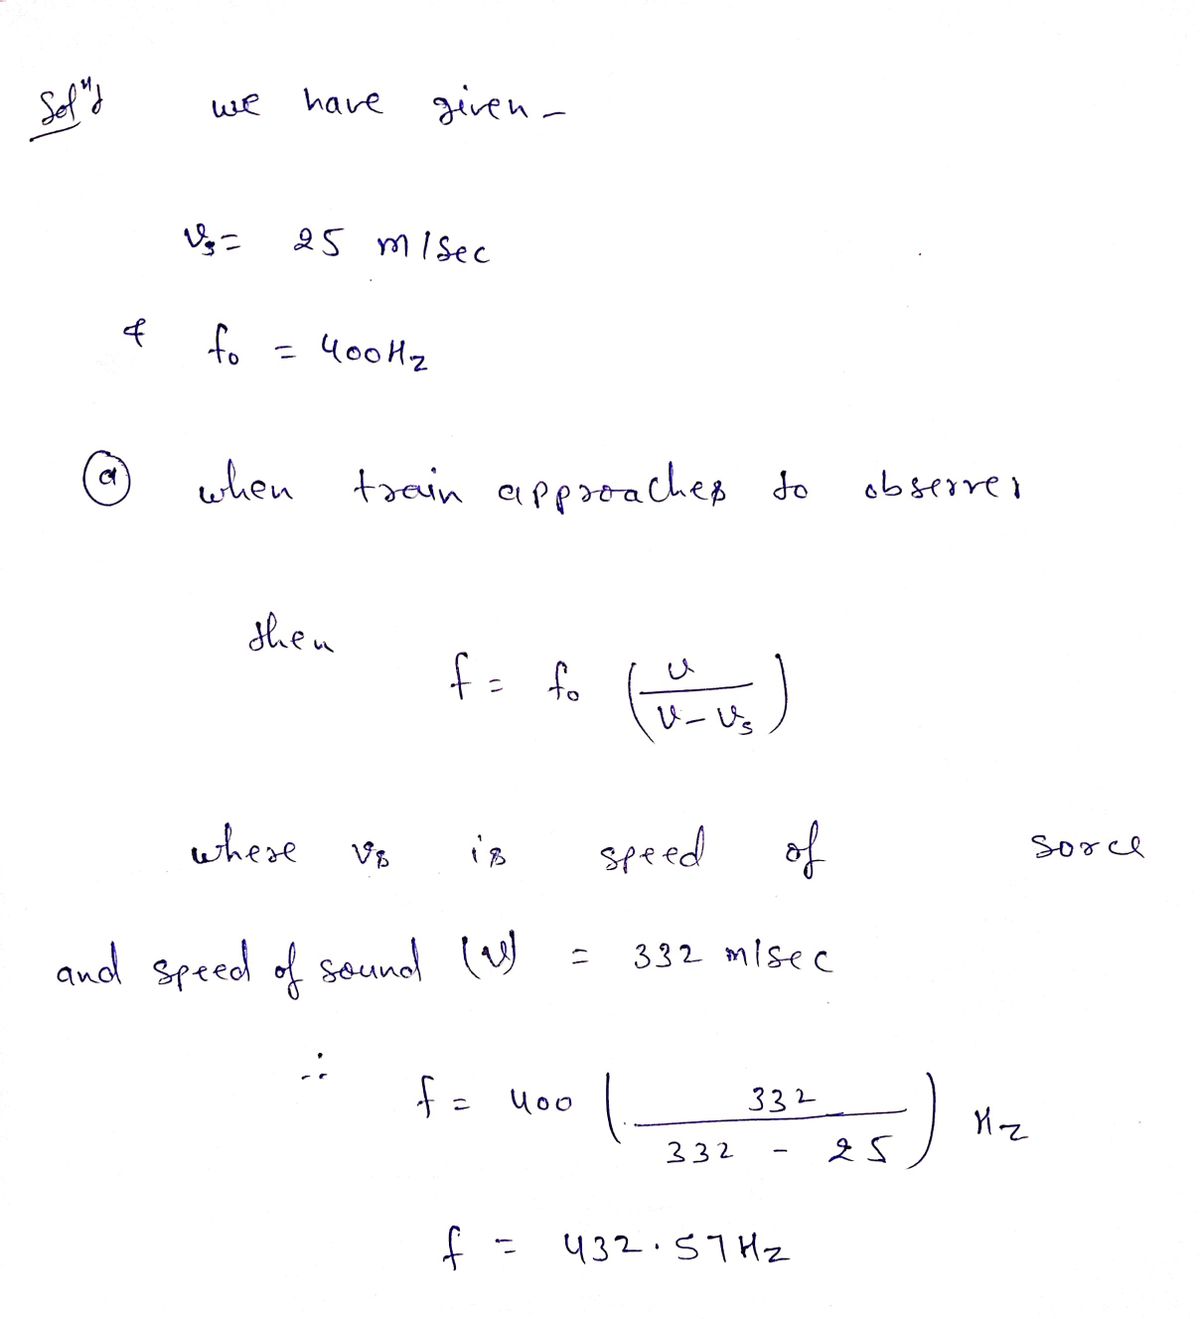 Solⁿ) we have given -
vs = 25 m/sec
& fo = 400Hz
(a) when train approaches to observer
then f = fo (v / (v - vs))
where vs is speed of sorce
and speed of sound (v) = 332 m/sec
∴ f = 400 (332 / (332 - 25)) Hz
f = 432.57Hz